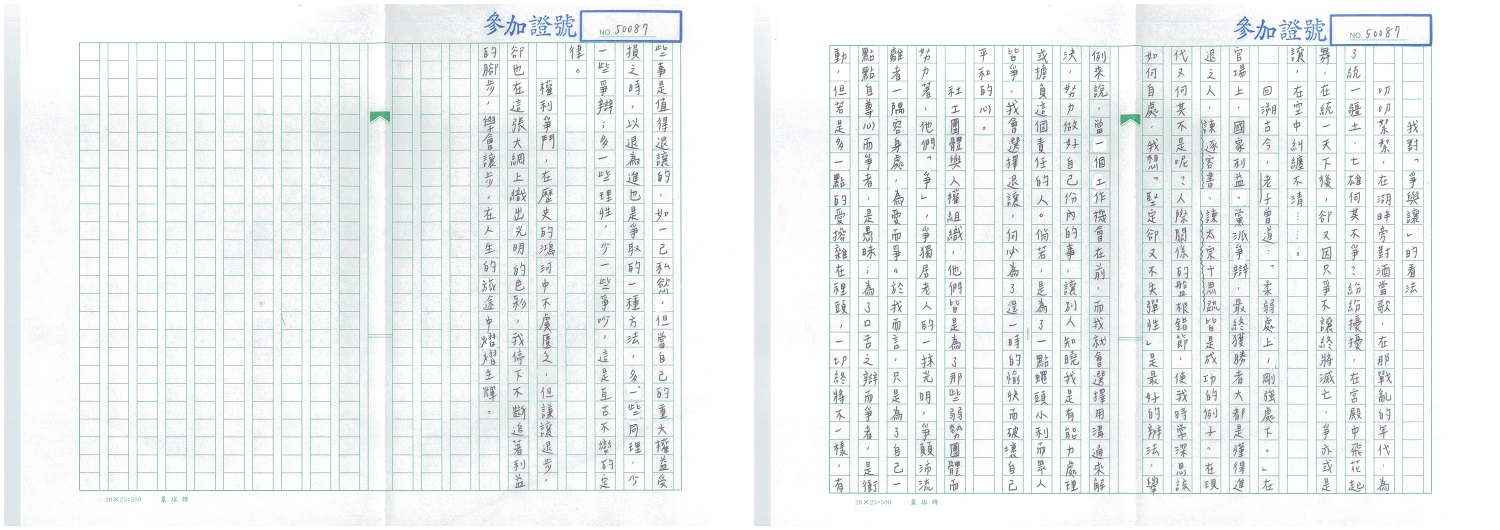 參加證號 NO. 50087
我對「爭與讓」的看法
叨叨絮絮,在湖畔旁對酒當歌,在那戰亂的年代,為
了統一疆土,七雄何其不爭?紛紛擾擾,在宮殿中飛花起
舞,在統一天下後,卻又因只爭不讓終將滅亡,爭亦或是
讓,在空中糾纏不清……。
回溯古今,老子曾道:「柔弱處上,剛強處下。」在
官場上,國家利益、黨派爭辯,最終獲勝者大都是懂得進
退之人,諫逐客書、諫太宗十思疏皆是成功的例子。在現
代又何其不是呢?人際關係的盤根錯節,使我時常深思該
如何自處,我想「堅定卻又不失彈性」是最好的辦法,舉
例來說,當一個工作機會在前,而我就會選擇用溝通來解
決,努力做好自己份內的事,讓別人知曉我是有能力處理
或擔負這個責任的人。倘若,是為了一點蠅頭小利而眾人
皆爭,我會選擇退讓,何必為了這一時的愉快而破壞自己
平和的心。
社工團體與人權組織,他們皆是為了那些弱勢團體而
努力著,他們「爭」,爭獨居老人的一抹光明,爭顛沛流
離者一隅容身處,為愛而爭。於我而言,只是為了自己一
點點自尊心而爭者,是愚昧;為了口舌之辯而爭者,是衝
動,但若是多一點的愛摻雜在裡頭,一切終將不一樣,有
20×25=500 象球牌
參加證號 NO. 50087
些事是值得退讓的,如一己私慾,但當自己的重大權益受
損之時,以退為進也是爭取的一種方法,多一些同理,少
一些爭辯;多一些理性,少一些爭吵,這是亙古不變的定
律。
權利爭鬥,在歷史的鴻河中不虞匱乏,但謙讓退步,
卻也在這張大網上織出光明的色彩,我停下不斷追著利益
的腳步,學會讓步,在人生的旅途中熠熠生輝。
20×25=500 象球牌